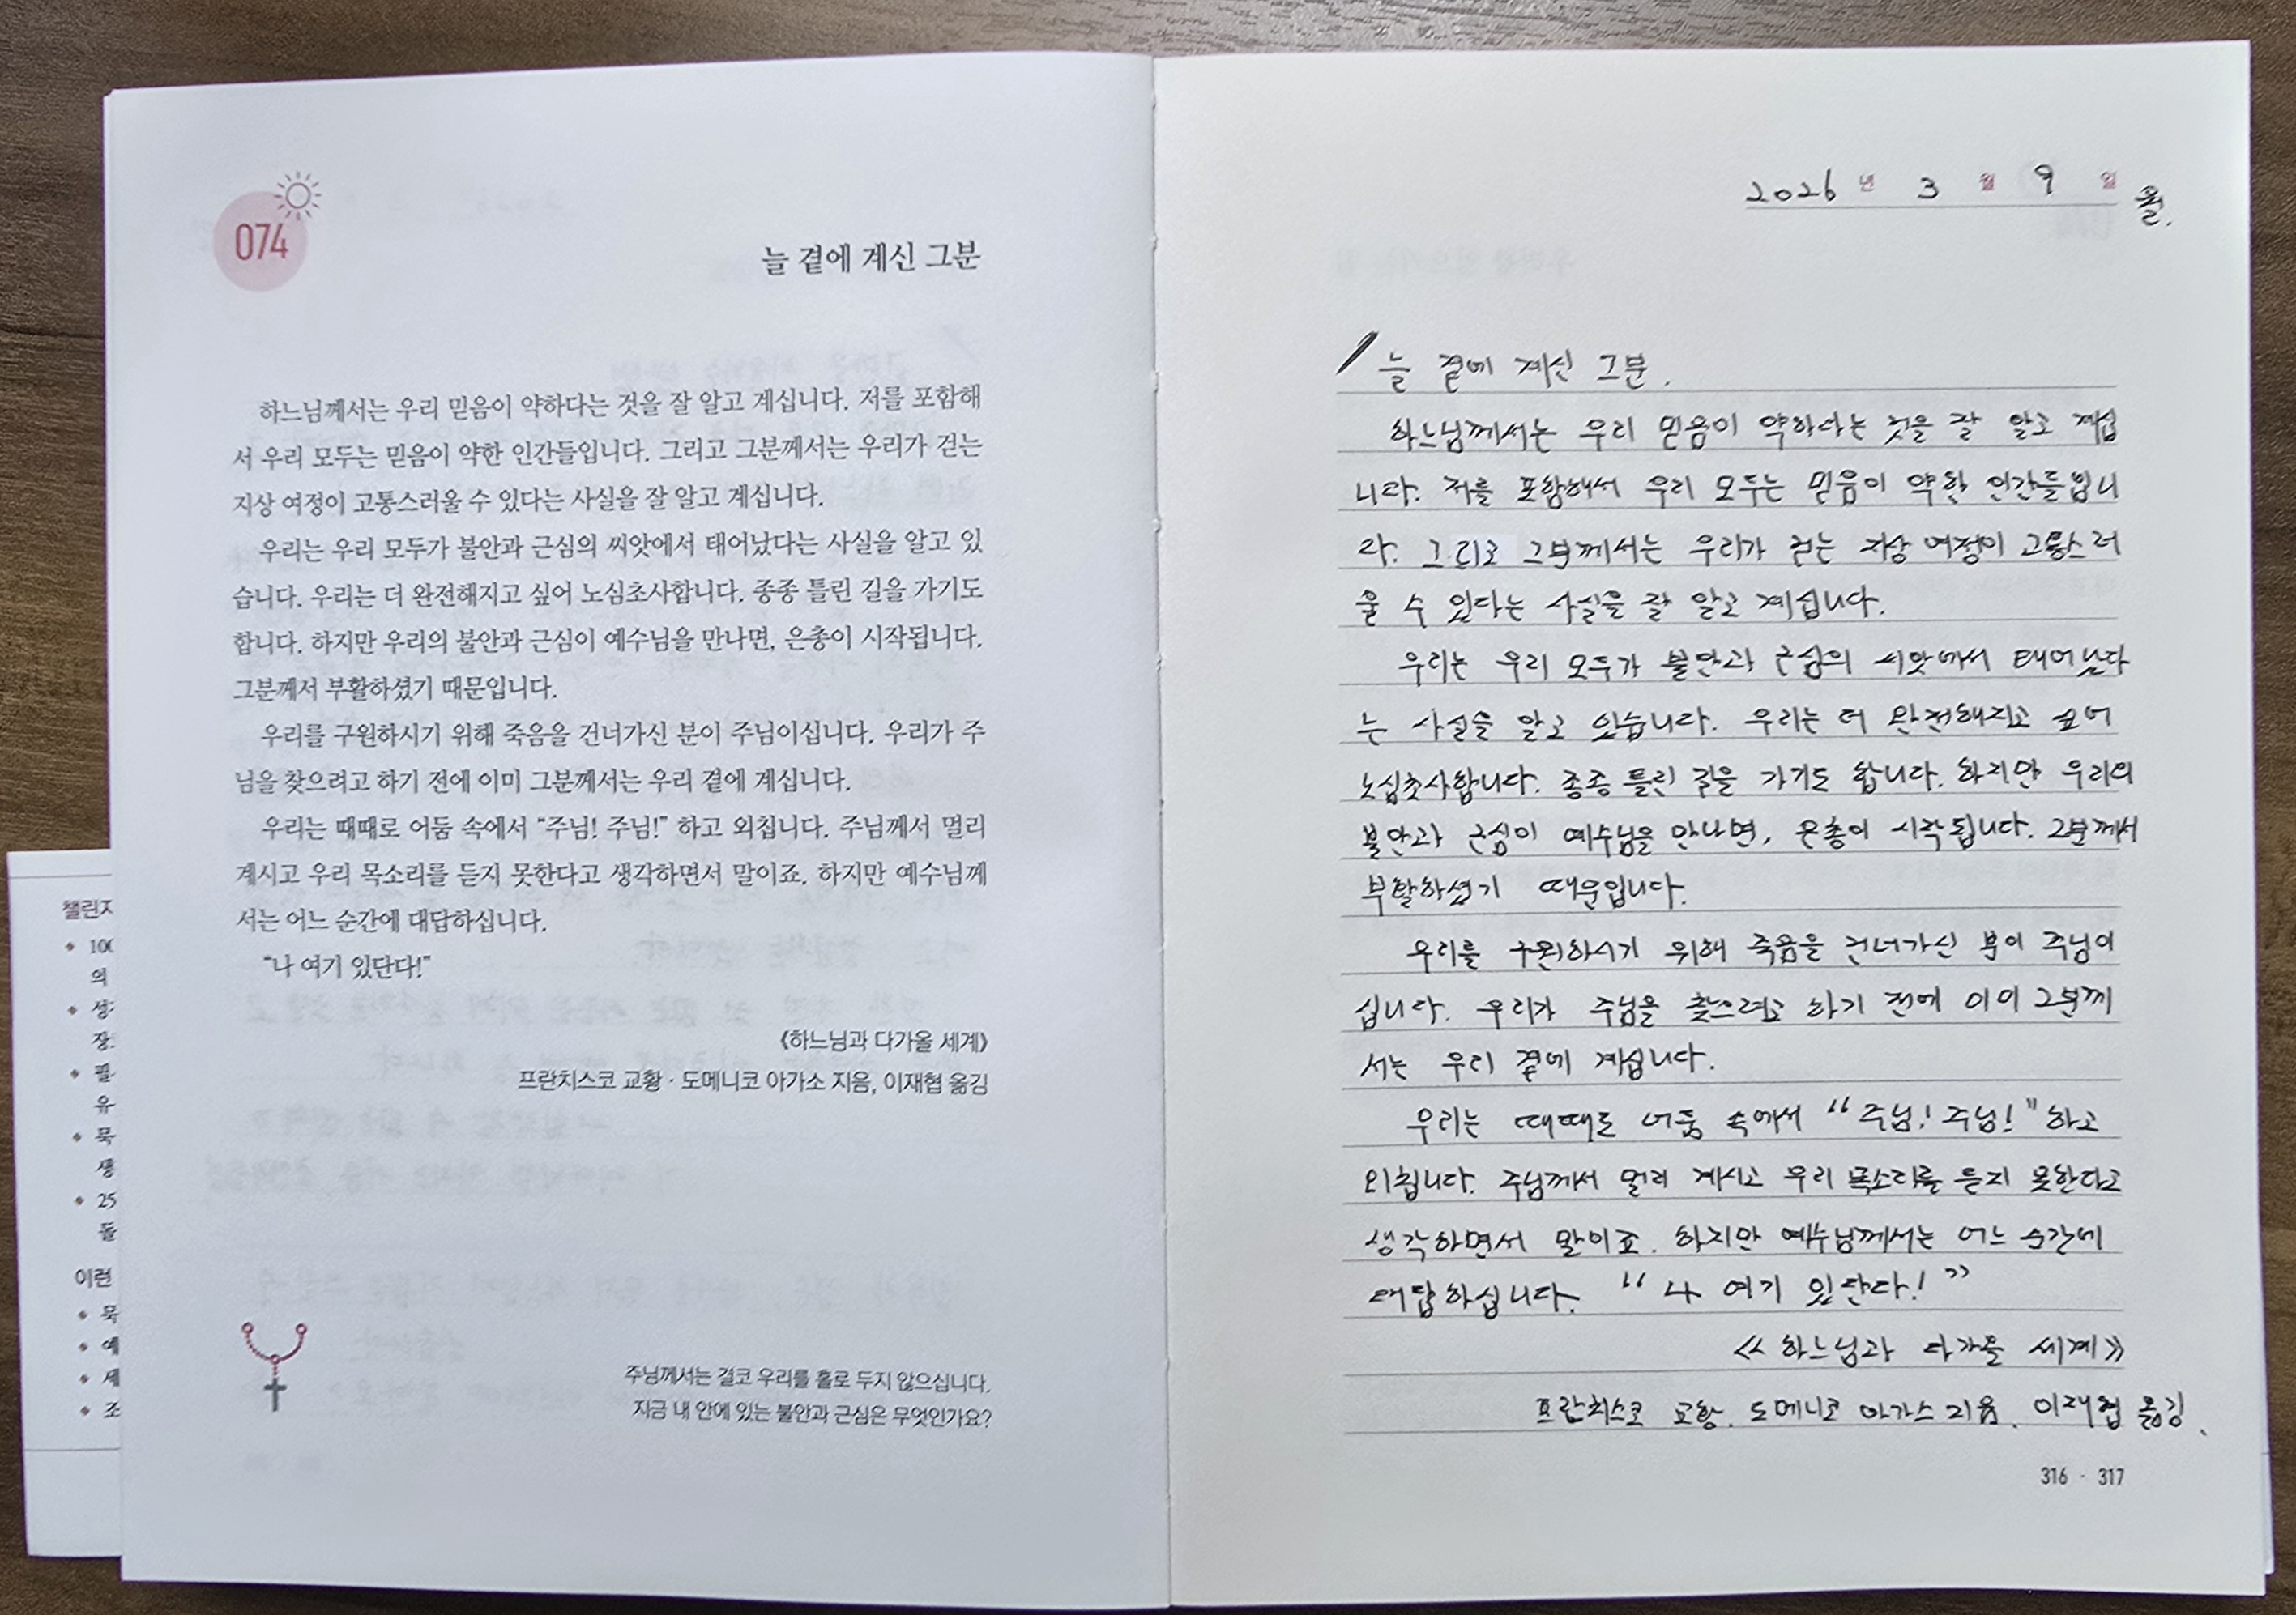 074
늘 곁에 계신 그분
하느님께서는 우리 믿음이 약하다는 것을 잘 알고 계십니다. 저를 포함해
서 우리 모두는 믿음이 약한 인간들입니다. 그리고 그분께서는 우리가 걷는
지상 여정이 고통스러울 수 있다는 사실을 잘 알고 계십니다.
우리는 우리 모두가 불안과 근심의 씨앗에서 태어났다는 사실을 알고 있
습니다. 우리는 더 완전해지고 싶어 노심초사합니다. 종종 틀린 길을 가기도
합니다. 하지만 우리의 불안과 근심이 예수님을 만나면, 은총이 시작됩니다.
그분께서 부활하셨기 때문입니다.
우리를 구원하시기 위해 죽음을 건너가신 분이 주님이십니다. 우리가 주
님을 찾으려고 하기 전에 이미 그분께서는 우리 곁에 계십니다.
우리는 때때로 어둠 속에서 “주님! 주님!” 하고 외칩니다. 주님께서 멀리
계시고 우리 목소리를 듣지 못한다고 생각하면서 말이죠. 하지만 예수님께
서는 어느 순간에 대답하십니다.
“나 여기 있단다!”
《하느님과 다가올 세계》
프란치스코 교황 · 도메니코 아가소 지음, 이재협 옮김
주님께서는 결코 우리를 홀로 두지 않으십니다.
지금 내 안에 있는 불안과 근심은 무엇인가요?
챌린지
100
의
성
장
필
유
묵
생
25
돌
이런
묵
예
세
조
2026 년 3 월 9 일 월.
늘 곁에 계신 그분.
하느님께서는 우리 믿음이 약하다는 것을 잘 알고 계십
니다. 저를 포함해서 우리 모두는 믿음이 약한 인간들입니
다. 그리고 그분께서는 우리가 걷는 지상 여정이 고통스러
울 수 있다는 사실을 잘 알고 계십니다.
우리는 우리 모두가 불안과 근심의 씨앗에서 태어났다
는 사실을 알고 있습니다. 우리는 더 완전해지고 싶어
노심초사합니다. 종종 틀린 길을 가기도 합니다. 하지만 우리의
불안과 근심이 예수님을 만나면, 은총이 시작됩니다. 그분께서
부활하셨기 때문입니다.
우리를 구원하시기 위해 죽음을 건너가신 분이 주님이
십니다. 우리가 주님을 찾으려고 하기 전에 이미 그분께
서는 우리 곁에 계십니다.
우리는 때때로 어둠 속에서 “주님! 주님!” 하고
외칩니다. 주님께서 멀리 계시고 우리 목소리를 듣지 못한다고
생각하면서 말이죠. 하지만 예수님께서는 어느 순간에
대답하십니다. “나 여기 있단다!”
《하느님과 다가올 세계》
프란치스코 교황. 도메니코 아가소 지음. 이재협 옮김.
316 · 317